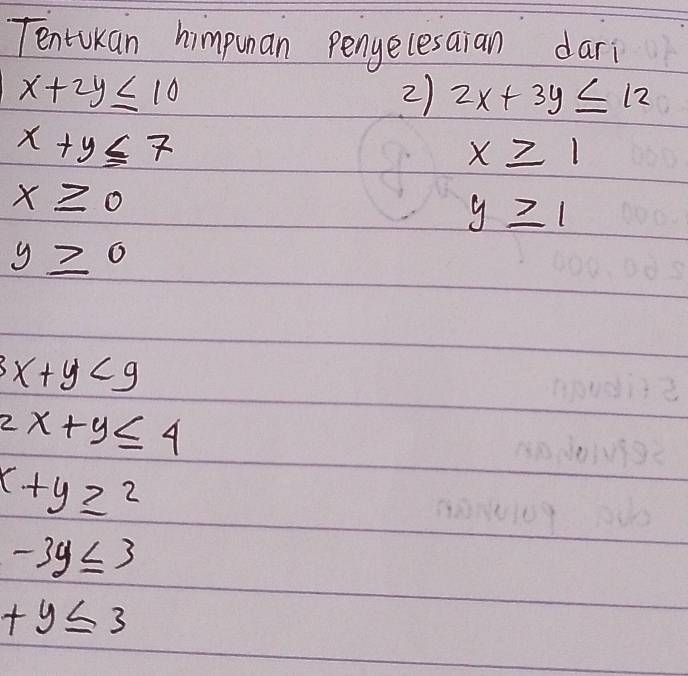 Tentukan himpunan penyelesaian dari
x + 2y ≤ 10
x + y ≤ 7
x ≥ 0
y ≥ 0
2) 2x + 3y ≤ 12
x ≥ 1
y ≥ 1
3x + y < 9
2x + y ≤ 4
x + y ≥ 2
-3y ≤ 3
+ y ≤ 3